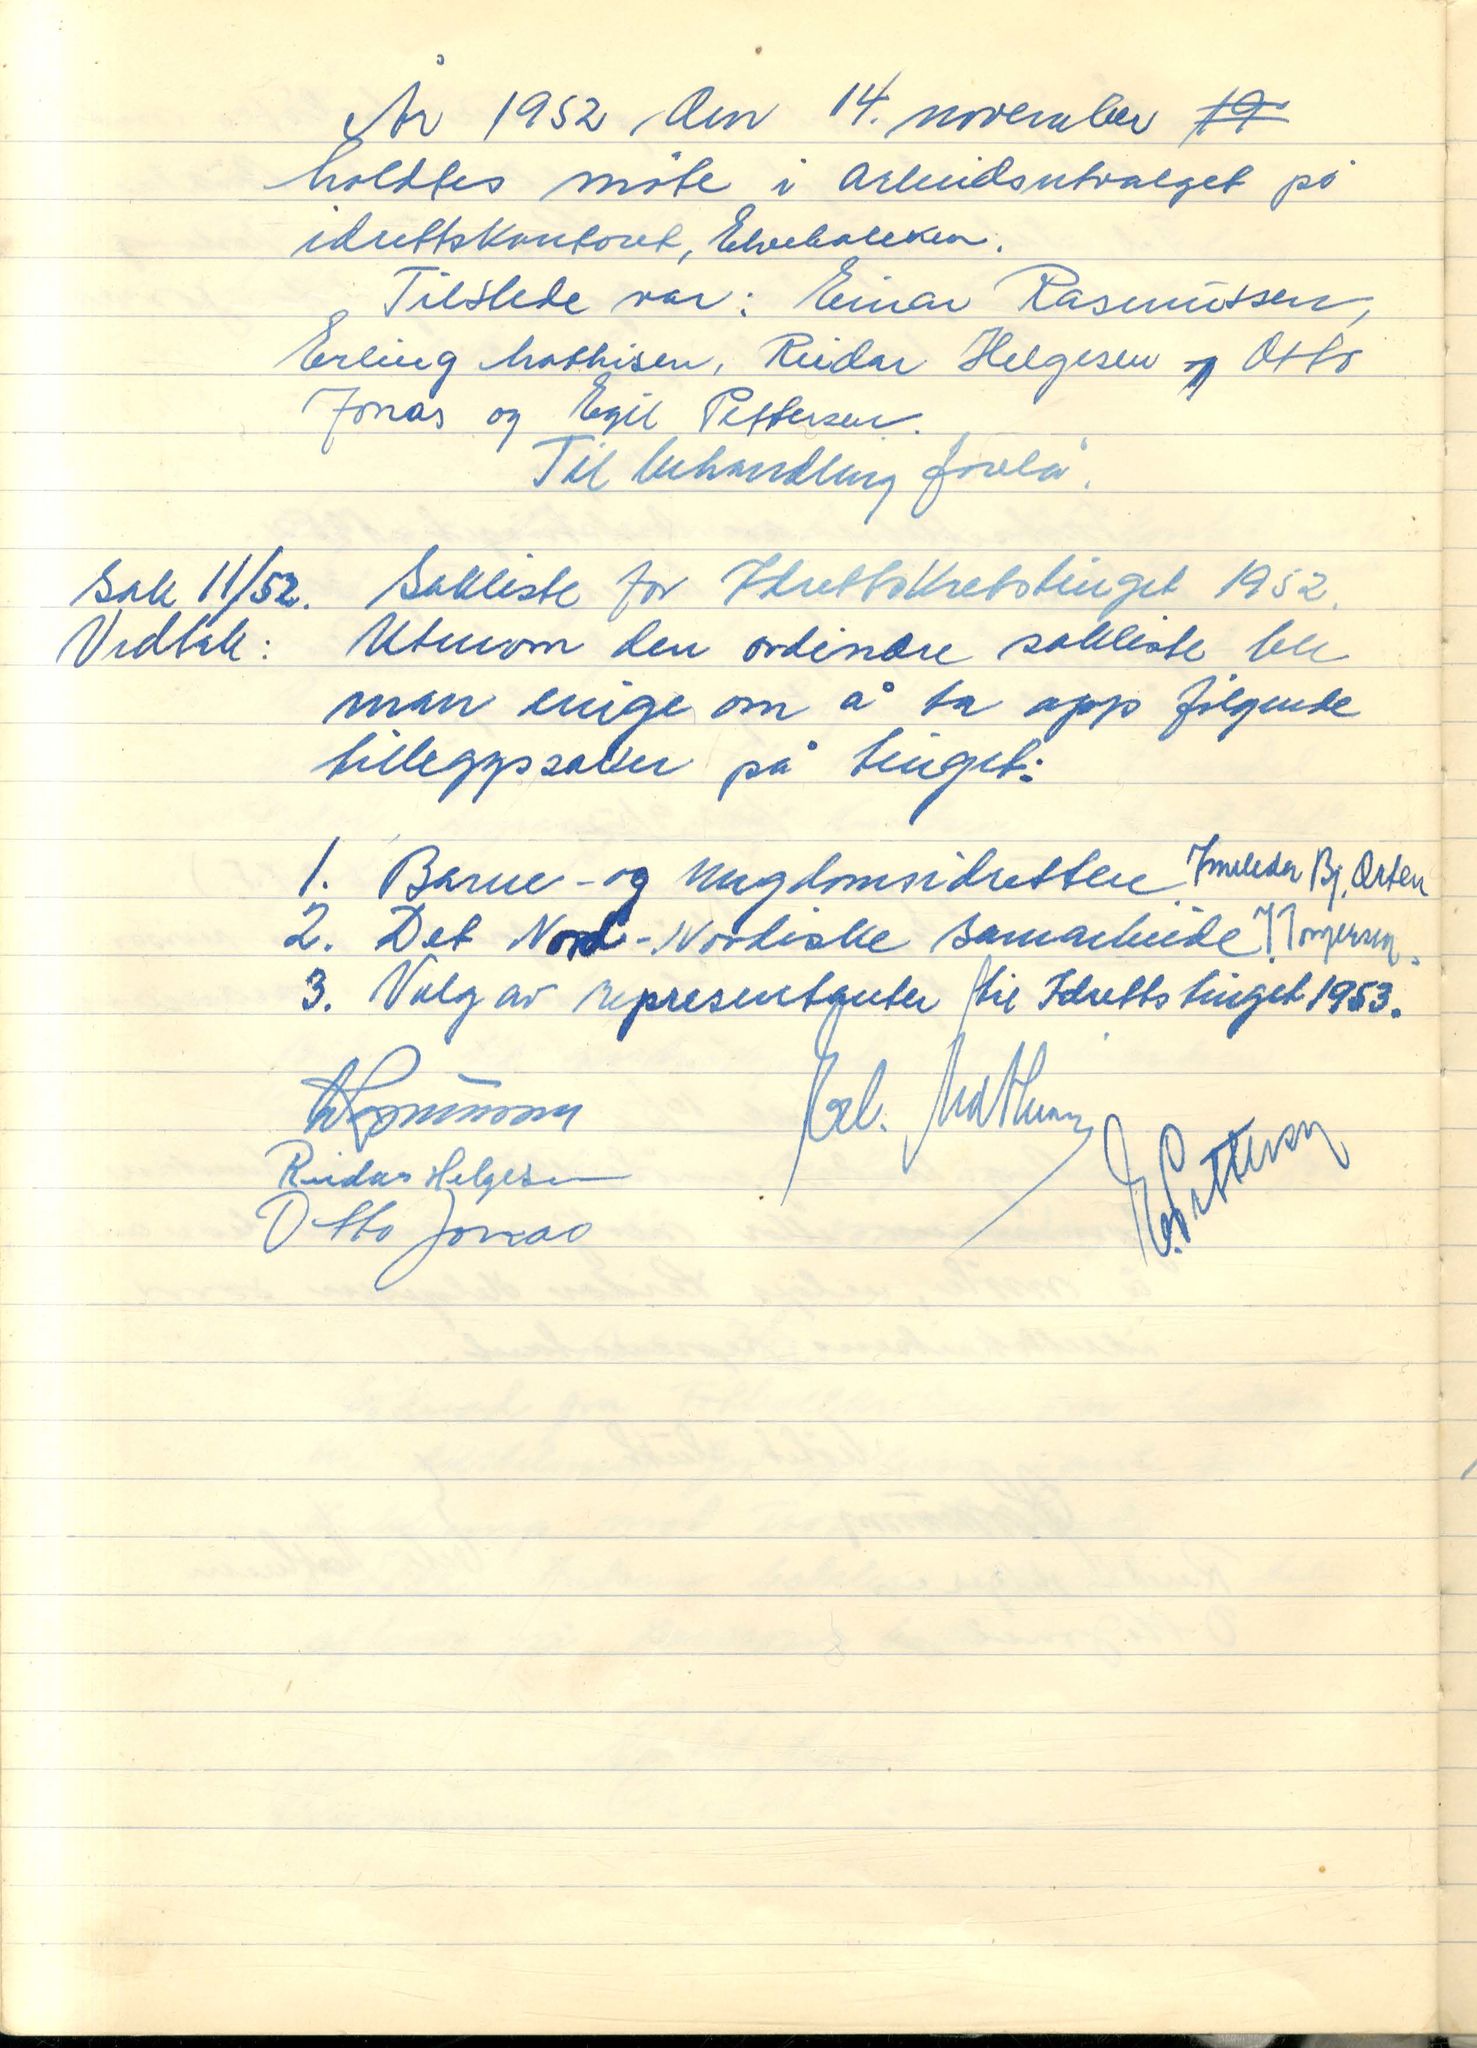 År 1952 den 14. november 19
holdtes møte i arbeidsutvalget på
idrettskontoret, Elvebakken.
Tilstede var: Einar Rasmussen,
Erling Mathisen, Reidar Helgesen og Otto
Jonas og Egil Pettersen.
Til behandling forelå.
Sak 11/52. Sakliste for Idrettskretstinget 1952.
Vedtak: Utenom den ordinære sakliste ble
man enige om å ta opp følgende
tilleggssaker på tinget:
1. Barne- og Ungdomsidretten. Innleder Bj. Orten
2. Det Nord-Nordiske samarbeide
3. Valg av representanter til Idrettstinget 1953.
Erl. Mathisen
E. Pettersen
Reidar Helgesen
Otto Jonas